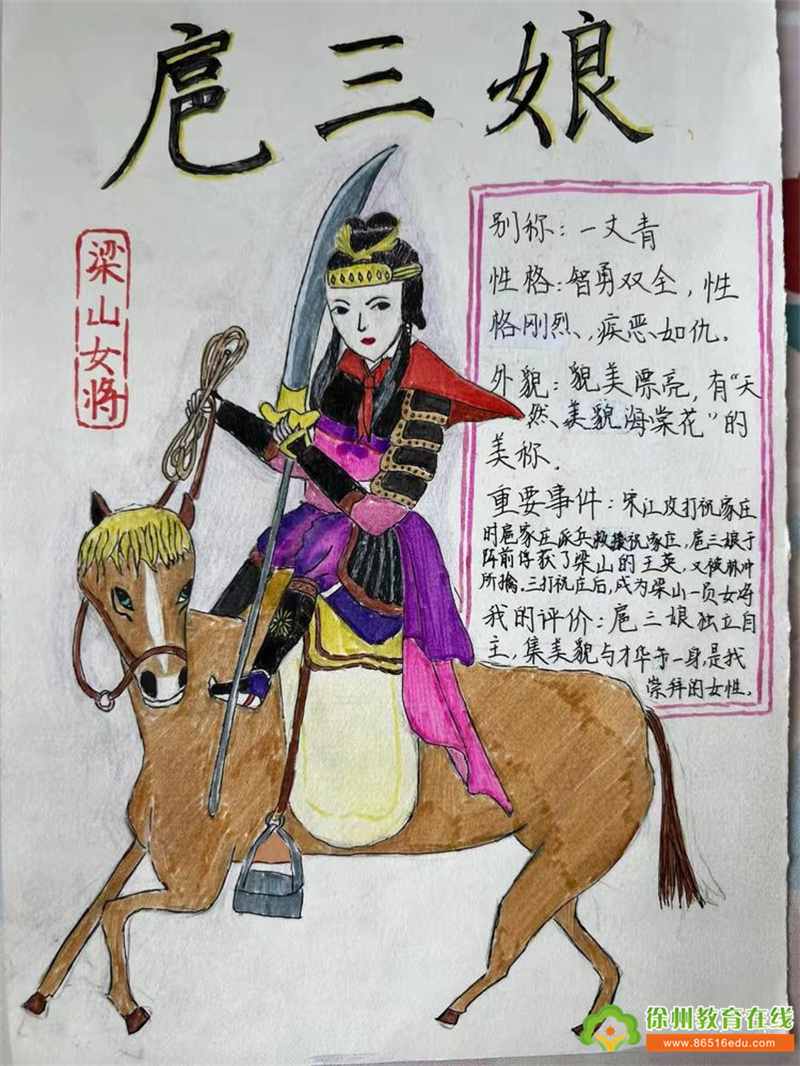 扈三娘
梁山女将
别称：一丈青
性格：智勇双全，性
格刚烈、疾恶如仇。
外貌：貌美漂亮，有“天
然美貌海棠花”的
美称.
重要事件：宋江攻打祝家庄
时扈家庄派兵救援祝家庄，扈三娘于
阵前俘获了梁山的王英，又被林冲
所擒.三打祝庄后，成为梁山一员女将
我的评价：扈三娘独立自
主，集美貌与才华于一身，是我
崇拜的女性.
徐州教育在线
www.86516edu.com